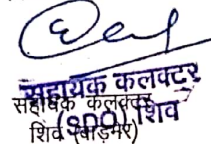 सहायक कलक्टर
सहायक कलक्टर
(SDO) शिव
शिव (बाड़मेर)